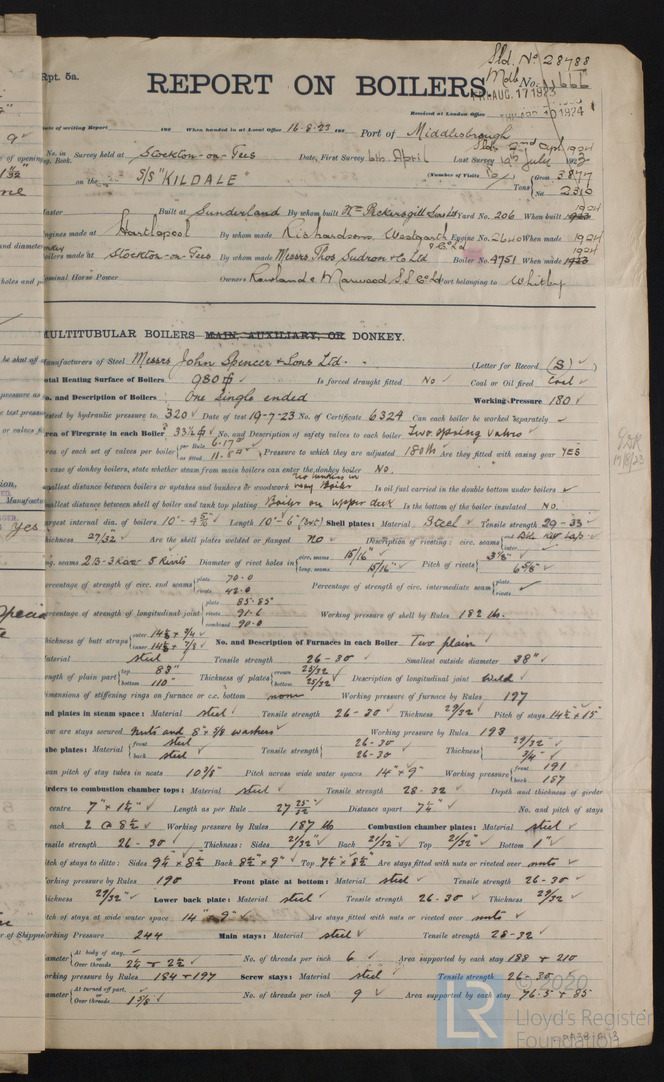 Sld. No 28788
Rpt. 5a.
REPORT ON BOILERS.
Mdb No.
FRI. AUG. 17 1923
Received at London Office
1924
Date of writing Report 192 When handed in at Local Office 16.8.23 192 Port of Middlesbrough
No. in Survey held at Stockton-on-Tees Date, First Survey 6th April Last Survey 19th July 1923
2nd Apl 1924
Reg. Book.
on the S/S "KILDALE" (Number of Visits Tons Gross 3877 Net 2310
Master Built at Sunderland By whom built Wm Pickersgill & Sons Ltd Yard No. 206 When built 1923 1924
Engines made at Hartlepool By whom made Richardsons, Westgarth & Co Ld Engine No. 2640 When made 1924
Boilers made at Stockton-on-Tees By whom made Messrs Thos Sudron & Co Ltd Boiler No. 4751 When made 1923 1924
Nominal Horse Power Owners Rowland & Marwood S.S. Co Ld Port belonging to Whitby
MULTITUBULAR BOILERS MAIN, AUXILIARY, OR DONKEY.
Manufacturers of Steel Messrs John Spencer & Sons Ltd. (Letter for Record (S) ✓
Total Heating Surface of Boilers 980 Is forced draught fitted No ✓ Coal or Oil fired Coal ✓
No. and Description of Boilers One Single ended Working Pressure 180 ✓
Tested by hydraulic pressure to 320 ✓ Date of test 19-7-23 No. of Certificate 6324 Can each boiler be worked separately ✓
Area of Firegrate in each Boiler 33½ No. and Description of safety valves to each boiler Two spring valves ✓
Area of each set of valves per boiler per Rule 6.17 as fitted 11.8 Pressure to which they are adjusted 180 lb Are they fitted with easing gear YES
In case of donkey boilers, state whether steam from main boilers can enter the donkey boiler No.
Smallest distance between boilers or uptakes and bunkers or woodwork no bunkers in way Boiler Is oil fuel carried in the double bottom under boilers ✓
Smallest distance between shell of boiler and tank top plating Boiler on upper deck Is the bottom of the boiler insulated No.
Largest internal dia. of boilers 10'-4 5/16" Length 10'-6" Shell plates: Material Steel ✓ Tensile strength 29-33 ✓
Thickness 27/32 ✓ Are the shell plates welded or flanged No ✓ Description of riveting: circ. seams end Dbl Riv Lap ✓ inter
long. seams 2B-3Row 5 Rivets Diameter of rivet holes in circ. seams 15/16" long. seams 15/16" ✓ Pitch of rivets 3 1/8" 6 5/8" ✓
Percentage of strength of circ. end seams plate 70.0 rivets 42.0 Percentage of strength of circ. intermediate seam plate rivets ✓
Percentage of strength of longitudinal joint plate 85.85 rivets 91.6 combined 90.0 Working pressure of shell by Rules 182 lb.
Thickness of butt straps outer inner No. and Description of Furnaces in each Boiler Two plain ✓
Material steel ✓ Tensile strength 26-30 ✓ Smallest outside diameter 38" ✓
Length of plain part top 83" bottom 110" Thickness of plates crown 25/32 bottom 25/32 ✓ Description of longitudinal joint Weld ✓
Dimensions of stiffening rings on furnace or c.c. bottom none Working pressure of furnace by Rules 197
End plates in steam space: Material steel ✓ Tensile strength 26-30 ✓ Thickness 29/32 ✓ Pitch of stays 14½ × 15"
How are stays secured Nuts and 8" × 5/8 washers ✓ Working pressure by Rules 193
Tube plates: Material front steel back steel ✓ Tensile strength 26-30 26-30 Thickness 29/32" ✓ 3/4" ✓
Mean pitch of stay tubes in nests 10 3/8" ✓ Pitch across wide water spaces 14" × 9" ✓ Working pressure front 191 back 187
Girders to combustion chamber tops: Material steel ✓ Tensile strength 28-32 ✓ Depth and thickness of girder
at centre 7" × 1¼" ✓ Length as per Rule 27 25/32 Distance apart 7¼" ✓ No. and pitch of stays
in each 2 @ 8½ ✓ Working pressure by Rules 187 lb Combustion chamber plates: Material steel ✓
Tensile strength 26-30 ✓ Thickness: Sides 21/32" ✓ Back 21/32" ✓ Top 21/32" ✓ Bottom 1" ✓
Pitch of stays to ditto: Sides 9¼" × 8½ Back 8½" × 9" ✓ Top 7¼" × 8½" Are stays fitted with nuts or riveted over nuts ✓
Working pressure by Rules 190 Front plate at bottom: Material steel ✓ Tensile strength 26-30 ✓
Thickness 29/32" ✓ Lower back plate: Material steel ✓ Tensile strength 26-30 ✓ Thickness 29/32 ✓
Pitch of stays at wide water space 14" × 9" ✓ Are stays fitted with nuts or riveted over nuts ✓
Working Pressure 244 Main stays: Material steel ✓ Tensile strength 28-32 ✓
Diameter At body of stay, or Over threads 2¼ + 2½ ✓ No. of threads per inch 6 ✓ Area supported by each stay 188 + 210
Working pressure by Rules 184 + 197 Screw stays: Material steel ✓ Tensile strength 26-30 ✓
Diameter At turned off part, or Over threads 1 5/8 ✓ No. of threads per inch 9 ✓ Area supported by each stay 76.5 + 85
© 2020
LR
Lloyd's Register
Foundation